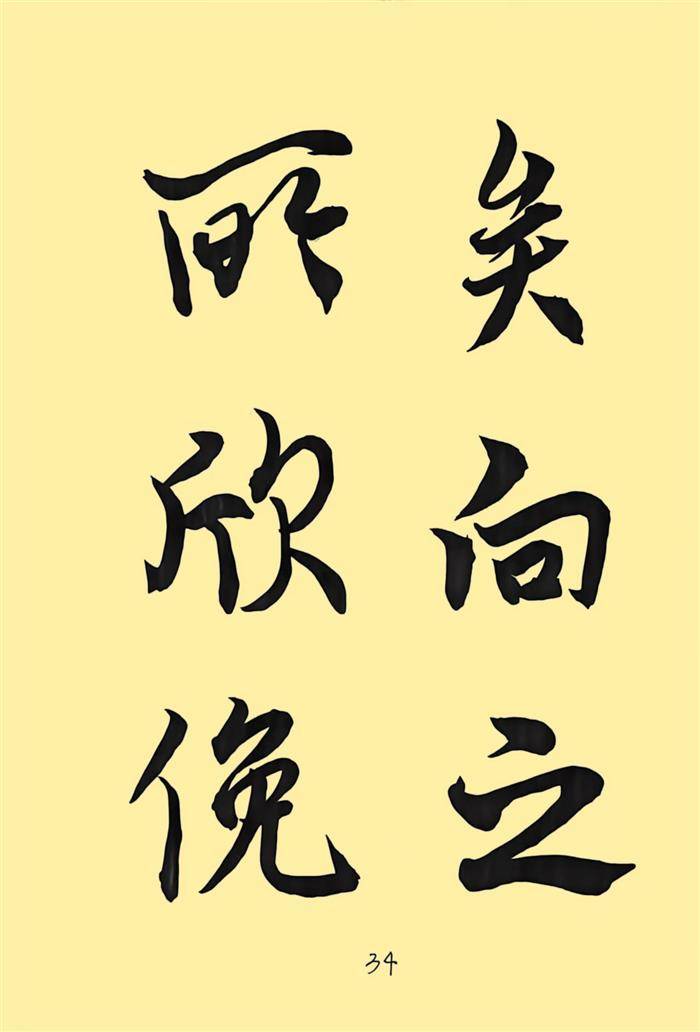 矣向之
所欣俛
34